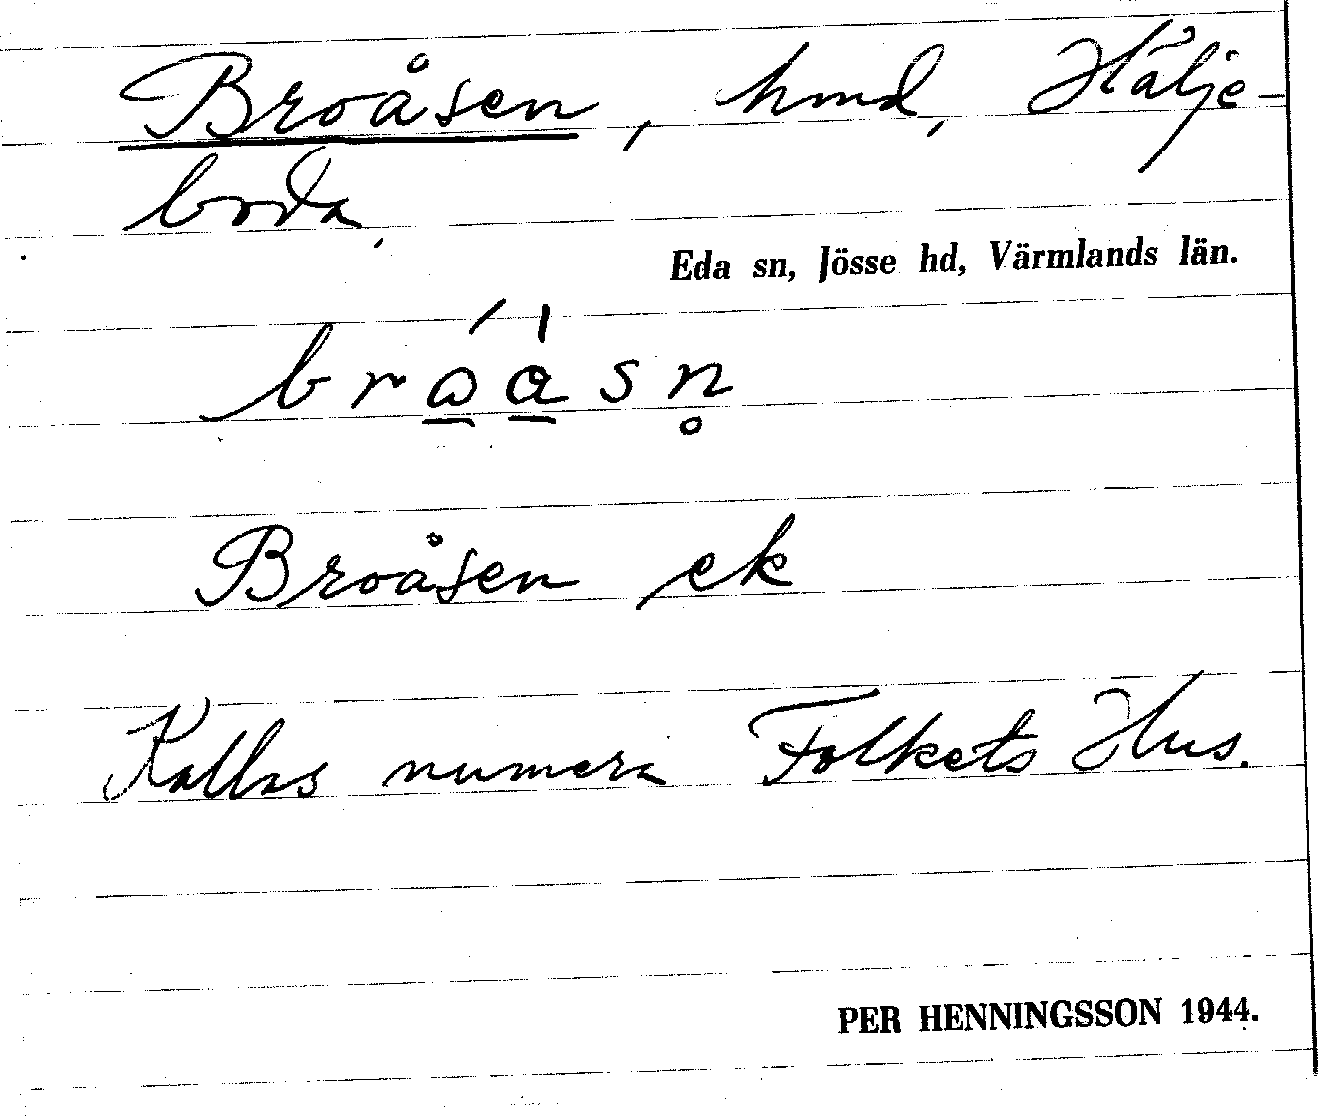 Broåsen, hmd, Hälje-
boda,
Eda sn, Jösse hd, Värmlands län.
Broåsen ek
Kallas numera Folkets Hus.
PER HENNINGSSON 1944.